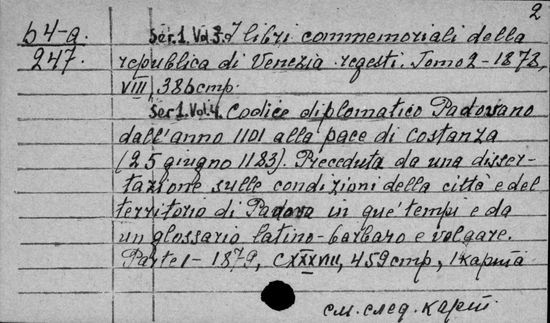 2
б4-а.
247.
Ser.1.Vol.3. I libri commemoriali della
republica di Venezia regesti. Tomo 2 - 1878,
VIII, 386 стр.
Ser.1.Vol.4. Codice diplomatico Padovano
dall'anno 1101 alla pace di Costanza
(25 giugno 1183). Preceduta da una disser-
tazione sulle condizioni della città e del
territorio di Padova in que'tempi e da
un glossario latino-barbaro e volgare.
Parte 1 - 1879, CXXXVII, 459 стр, 1 карта
см. след. карт